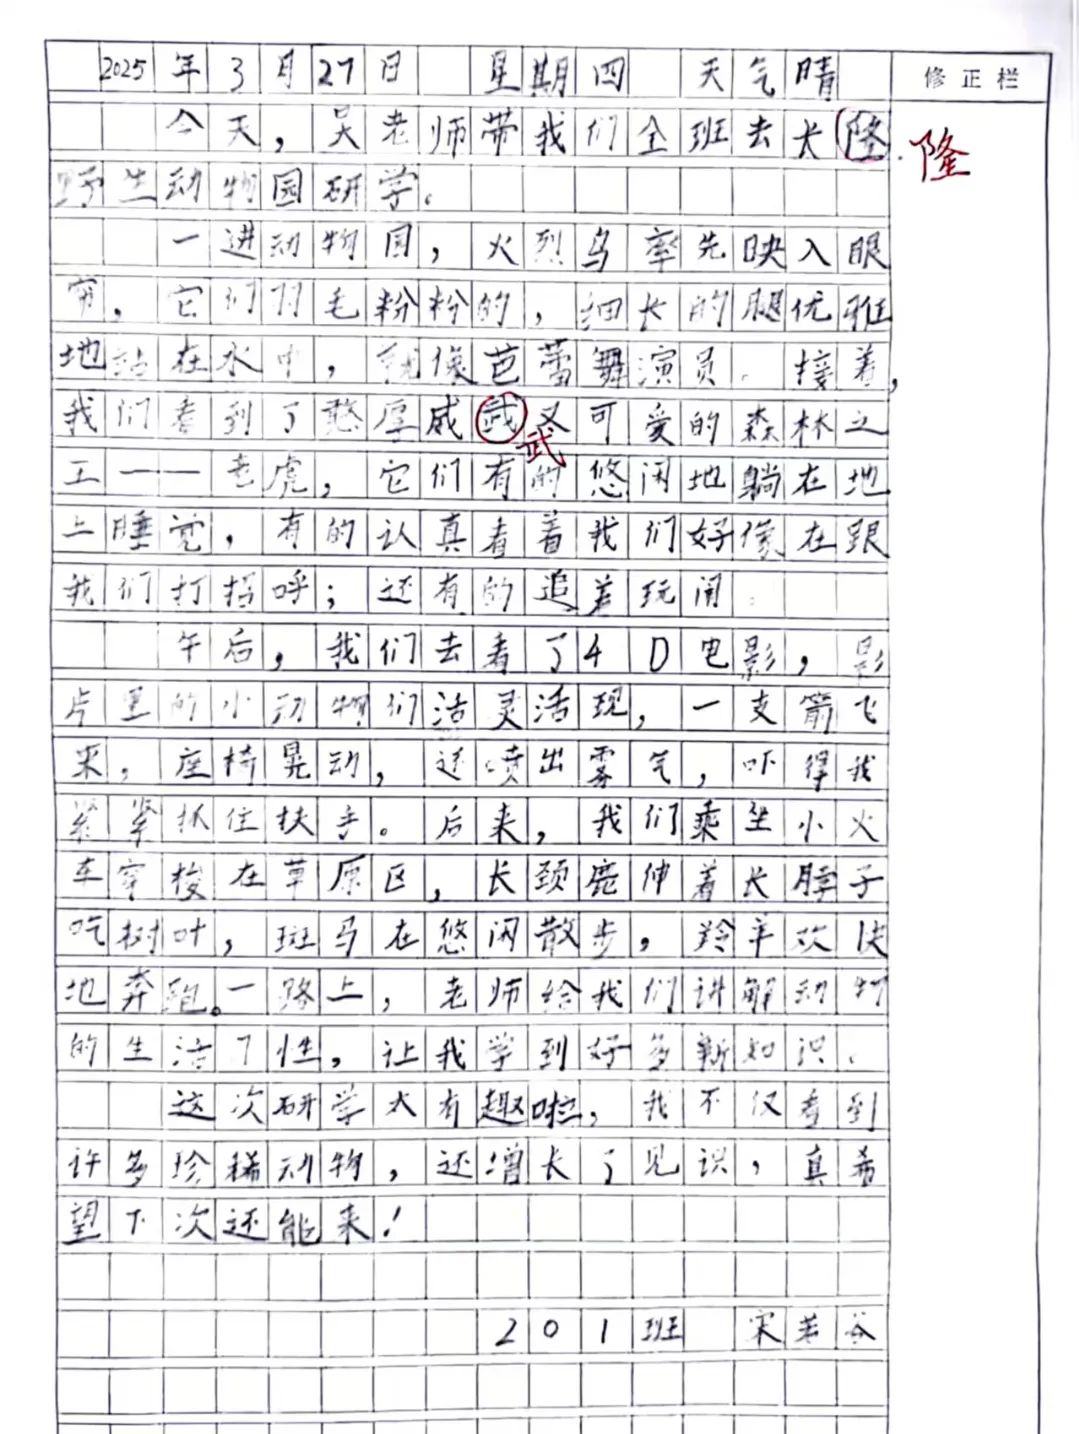 2025年3月27日 星期四 天气晴
修正栏
今天，吴老师带我们全班去长隆
隆
野生动物园研学。
一进动物园，火烈鸟率先映入眼
帘，它们羽毛粉粉的，细长的腿优雅
地站在水中，就像芭蕾舞演员。接着，
我们看到了憨厚威武又可爱的森林之
武
王——老虎，它们有的悠闲地躺在地
上睡觉，有的认真看着我们好像在跟
我们打招呼；还有的追着玩闹。
午后，我们去看了4D电影，影
片里的小动物们活灵活现，一支箭飞
来，座椅晃动，还喷出雾气，吓得我
紧紧抓住扶手。后来，我们乘坐小火
车穿梭在草原区，长颈鹿伸着长脖子
吃树叶，斑马在悠闲散步，羚羊欢快
地奔跑。一路上，老师给我们讲解动物
的生活习性，让我学到好多新知识。
这次研学太有趣啦，我不仅看到
许多珍稀动物，还增长了见识，真希
望下次还能来！
201班 宋若谷